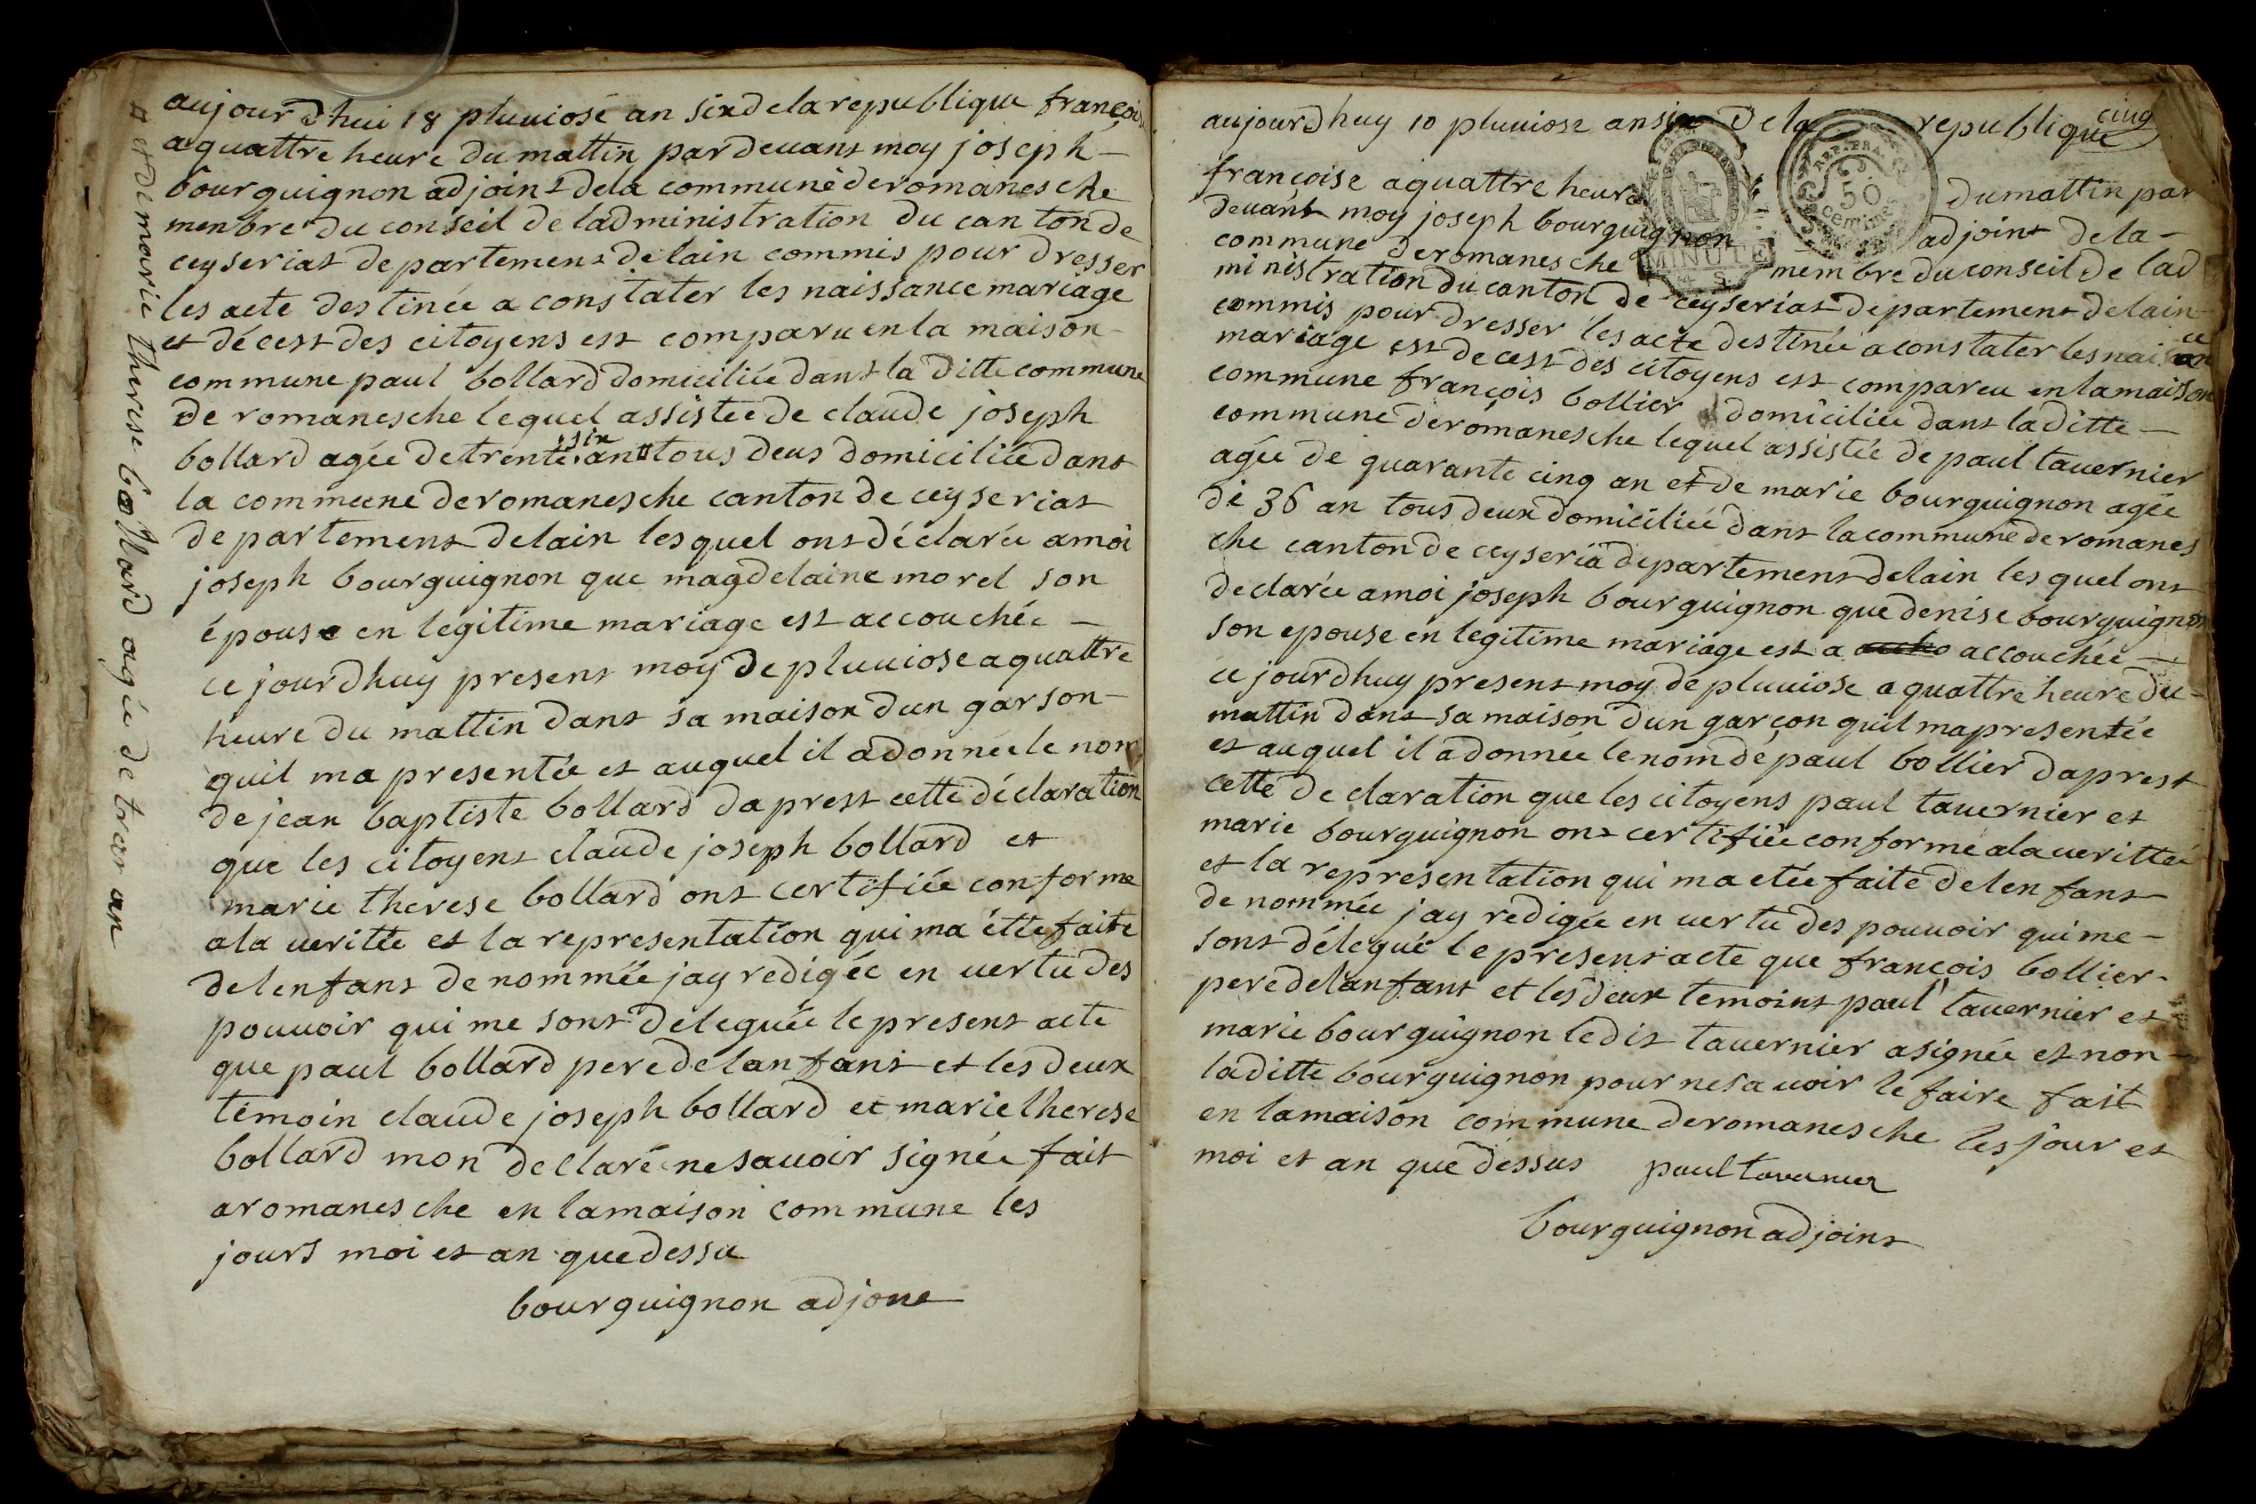 aujourdhui 18 pluuiose an six de la republique françois
a quattre heure du mattin par deuant moy joseph —
bourguignon adjoint de la commune de romanesche
menbre du conseil de ladministration du canton de
ceyseriat departement de lain commis pour dresser
les acte destinée a constater les naissance mariage
et décest des citoyens est comparu en la maison -
commune paul bollard domiciliée dans la ditte commune
de romanesche lequel assistée de claude joseph
bollard agée de trente six an ¤ tous deus domiciliée dans
la commune de romanesche canton de ceyseriat
departement de lain lesquel ont déclarée a moi
joseph bourguignon que magdelaine morel son
épouse en legitime mariage est accouchée —
ce jourdhuy present moy de pluuiose a quattre
heure du mattin dans sa maison dun garson -
quil ma presentée et auquel il a donnée le nom
de jean baptiste bollard daprest cette déclaration
que les citoyent claude joseph bollard et
marie therese bollard ont certifiée conforme
a la veritte et la representation qui ma étte faite
de lenfans denommée jay redigée en uertu des
pouuoir qui me sont deleguée le present acte
que paul bollard pere de lanfant et les deux
temoin claude joseph bollard et marie therese
bollard mon declaré ne sauoir signée fait
a romanesche en la maison commune les
jours moi et an que dessu
bourguignon adjone
¤ et de marie therese bollard agée de tran an
cinq
aujourdhuy 10 pluuiose an six de la republique
françoise a quattre heure du mattin par
deuant moy joseph bourguignon adjoint de la -
commune de romanesche membre du conseil de lad
ministration du canton de ceyseriat departement de lain
commis pour dresser les acte destinée a constater les naisance
mariage est decest des citoyens est compareu en la maison
commune françois bollier domiciliée dans la ditte —
commune de romanesche lequel assistée de paul tauernier
agée de quarante cinq an et de marie bourguignon agée
de 36 an tous deux domiciliée dans la commune de romanes
che canton de ceyseria departement de lain lesquel ont
declarée a moi joseph bourguignon que denise bourguignon
son epouse en legitime mariage est a accouchée —
ce jourdhuy present moy de pluuiose a quattre heure du -
mattin dans sa maison dun garçon quil ma presentée
et auquel il a donnée le nom de paul bollier daprest
cette declaration que les citoyens paul tauernier et
marie bourguignon ont certifiée conforme a la uerittée
et la representation qui ma etée faite de lenfans
denommée jay redigée en uertu des pouuoir qui me -
sont déleguée le present acte que françois bollier -
pere de lanfant et les deux temoins paul tauernier et
marie bourguignon ledit tauernier a signée et non -
la ditte bourguignon pour ne sauoir le faire fait
en la maison commune de romanesche les jour et
moi et an que dessus paul tavernier
bourguignon adjoint
REP. FRA.
50
centimes
MINUTE